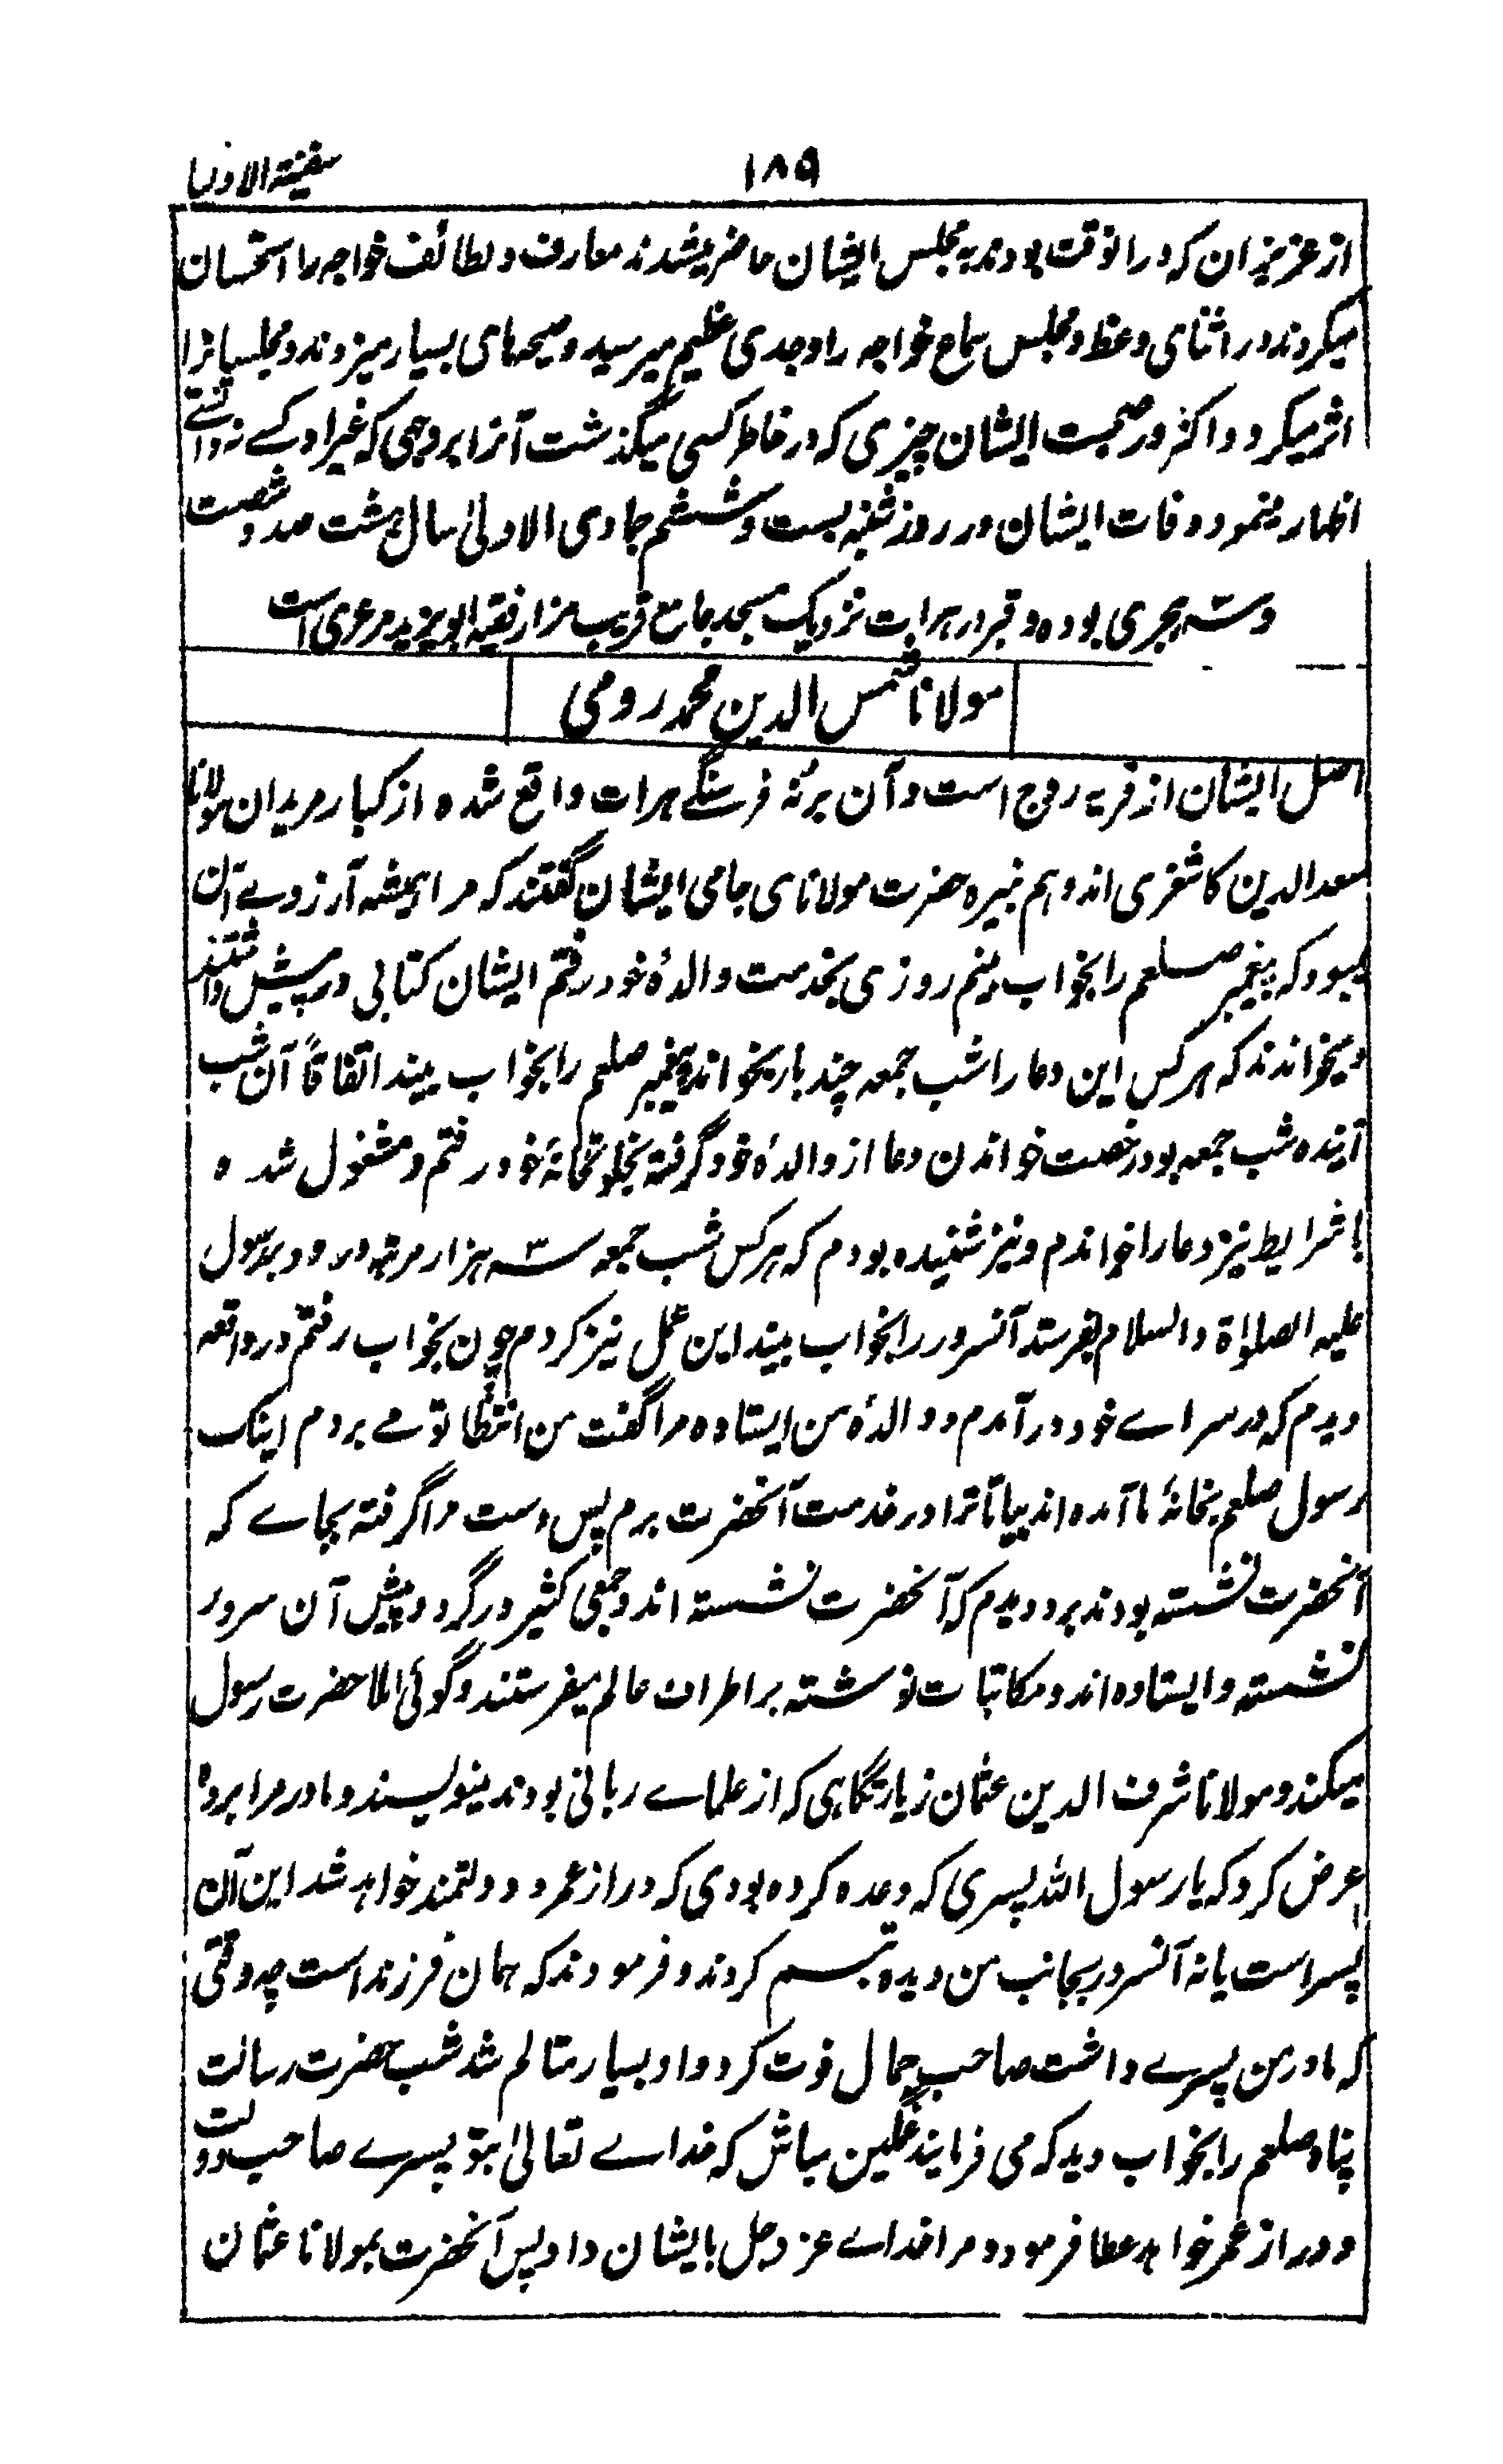 ۱۸۹ سفینۃ الاولیا
از عزیزان که درانوقت بودند به مجلس ایشان حاضر میشدند معارف و لطائف خواجه را استحسان
میکردند در اثنای وعظ و مجلس سماع خواجه را وجدی عظیم میرسید و صیحهای بسیار میزدند و مجلسیانرا
اثر میکرد و اکثر در صحبت ایشان چیزی که در خاطر کسی میگذشت آنرا بروجهی که غیر او کسے نه دانستے
اظهار مینمود وفات ایشان در روز شنبه بست و ششم جمادی الاولیٰ سال هشت صد و شصت
و سه هجری بوده و قبر در هرات نزدیک مسجد جامع قریب مزار فقیه ابو یزید مرغزی است
مولانا شمس الدین محمد رومی
اصل ایشان از قریه روج است و آن بر نُه فرسنگے هرات واقع شده از کبار مریدان مولانا
سعد الدین کاشغری اند و هم نبیره حضرت مولانای جامی ایشان گفتند که مرا همیشه آرزوے آن
میبود که پیغمبر صلعم را بخواب بینم روزی بخدمت والدۀ خود رفتم ایشان کتابی در پیش داشتند
و میخواندند که هر کس این دعا را شب جمعه چند بار بخواند پیغمبر صلعم را بخواب بیند اتفاقاً آن شب
آینده شب جمعه بود رخصت خواندن دعا از والدۀ خود گرفته بخلوتخانۀ خود رفتم و مشغول شده
با شرایط نیز دعا را خواندم و نیز شنیده بودم که هر کس شب جمعه سه هزار مرتبه درود بر رسول
علیه الصلوٰة والسلام بفرستد آنسرور را بخواب بیند این عمل نیز کردم چون بخواب رفتم در واقعه
دیدم که در سراے خود درآمدم و والدۀ من ایستاده مرا گفت من انتظار تو مے بردم اینک
رسول صلعم بخانۀ ما آمده اند بیا تا ترا در خدمت آنحضرت برم پس دست مرا گرفته بجاے که
آنحضرت نشسته بودند برد دیدم که آنحضرت نشسته اند و جمعی کثیر در گرد و پیش آن سرور
نشسته و ایستاده اند و مکاتبات نوشته بر اطراف عالم میفرستند و گوئی املا حضرت رسول
میکنند و مولانا شرف الدین عثمان زیارتگاهی که از علماے ربانی بودند مینویسند و مادر مرا برده
عرض کرد که یا رسول الله پسری که وعده کرده بودی که دراز عمر و دولتمند خواهد شد این آن
پسر است یا نه آنسرور بجانب من دیده تبسم کردند و فرمودند که همان فرزند است چه وقتی
که مادر من پسرے داشت صاحب جمال فوت کرد و او بسیار متالم شد شب حضرت رسالت
پناه صلعم را بخواب دید که می فرمایند غمگین مباش که خداے تعالیٰ بتو پسرے صاحب دولت
و دراز عمر خواهد عطا فرمود و مرا خداے عز و جل بایشان داد پس آنحضرت بمولانا عثمان